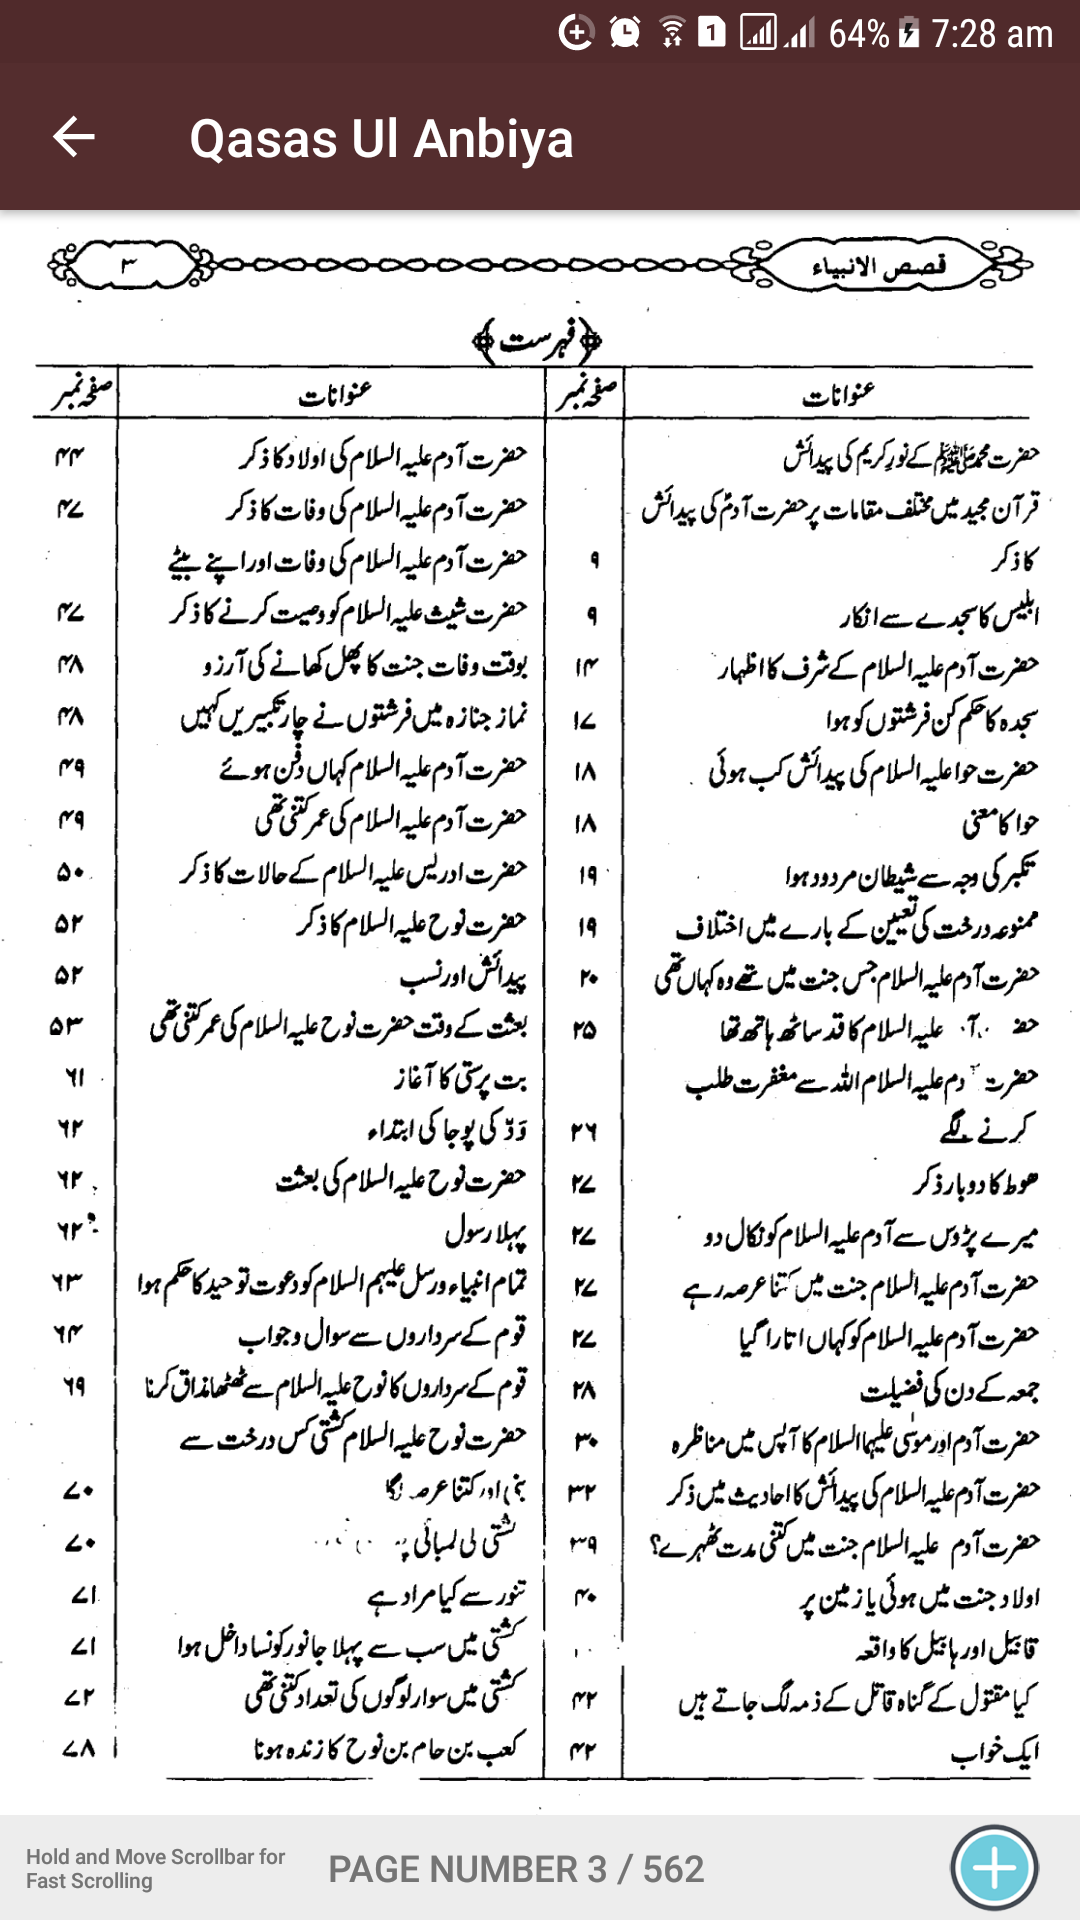 64% 7:28 am
Qasas Ul Anbiya
قصص الانبیاء
۳
فہرست
عنوانات صفحہ نمبر
حضرت محمد ﷺ کے نورِ کریم کی پیدائش
قرآن مجید میں مختلف مقامات پر حضرت آدمؑ کی پیدائش
کا ذکر ۹
ابلیس کا سجدے سے انکار ۹
حضرت آدم علیہ السلام کے شرف کا اظہار ۱۴
سجدہ کا حکم کن فرشتوں کو ہوا ۱۷
حضرت حوا علیہ السلام کی پیدائش کب ہوئی ۱۸
حوا کا معنی ۱۸
تکبر کی وجہ سے شیطان مردود ہوا ۱۹
ممنوعہ درخت کی تعیین کے بارے میں اختلاف ۱۹
حضرت آدم علیہ السلام جس جنت میں تھے وہ کہاں تھی ۲۰
علیہ السلام کا قد ساٹھ ہاتھ تھا ۲۵
حضرت آدم علیہ السلام اللہ سے مغفرت طلب
کرنے لگے ۲۶
ھوط کا دوبار ذکر ۲۷
میرے پڑوس سے آدم علیہ السلام کو نکال دو ۲۷
حضرت آدم علیہ السلام جنت میں کتنا عرصہ رہے ۲۷
حضرت آدم علیہ السلام کو کہاں اتارا گیا ۲۷
جمعہ کے دن کی فضیلت ۲۸
حضرت آدم اور موسیٰ علیہما السلام کا آپس میں مناظرہ ۳۰
حضرت آدم علیہ السلام کی پیدائش کا احادیث میں ذکر ۳۲
حضرت آدم علیہ السلام جنت میں کتنی مدت ٹھہرے؟ ۳۹
اولاد جنت میں ہوئی یا زمین پر ۴۰
قابیل اور ہابیل کا واقعہ
کیا مقتول کے گناہ قاتل کے ذمہ لگ جاتے ہیں ۴۲
ایک خواب ۴۲
عنوانات صفحہ نمبر
حضرت آدم علیہ السلام کی اولاد کا ذکر ۴۴
حضرت آدم علیہ السلام کی وفات کا ذکر ۴۷
حضرت آدم علیہ السلام کی وفات اور اپنے بیٹے
حضرت شیث علیہ السلام کو وصیت کرنے کا ذکر ۴۷
بوقت وفات جنت کا پھل کھانے کی آرزو ۴۸
نماز جنازہ میں فرشتوں نے چار تکبیریں کہیں ۴۸
حضرت آدم علیہ السلام کہاں دفن ہوئے ۴۹
حضرت آدم علیہ السلام کی عمر کتنی تھی ۴۹
حضرت ادریس علیہ السلام کے حالات کا ذکر ۵۰
حضرت نوح علیہ السلام کا ذکر ۵۲
پیدائش اور نسب ۵۲
بعثت کے وقت حضرت نوح علیہ السلام کی عمر کتنی تھی ۵۳
بت پرستی کا آغاز ۶۱
وَدّ کی پوجا کی ابتداء ۶۲
حضرت نوح علیہ السلام کی بعثت ۶۲
پہلا رسول ۶۲
تمام انبیاء ورسل علیہم السلام کو دعوت توحید کا حکم ہوا ۶۳
قوم کے سرداروں سے سوال وجواب ۶۴
قوم کے سرداروں کا نوح علیہ السلام سے ٹھٹھا مذاق کرنا ۶۹
حضرت نوح علیہ السلام کشتی کس درخت سے
بنی اور کتنا عرصہ لگا ۷۰
کشتی کی لمبائی ۷۰
تنور سے کیا مراد ہے ۷۱
کشتی میں سب سے پہلا جانور کونسا داخل ہوا ۷۱
کشتی میں سوار لوگوں کی تعداد کتنی تھی ۷۲
کعب بن حام بن نوح کا زندہ ہونا ۷۸
Hold and Move Scrollbar for
Fast Scrolling
PAGE NUMBER 3 / 562